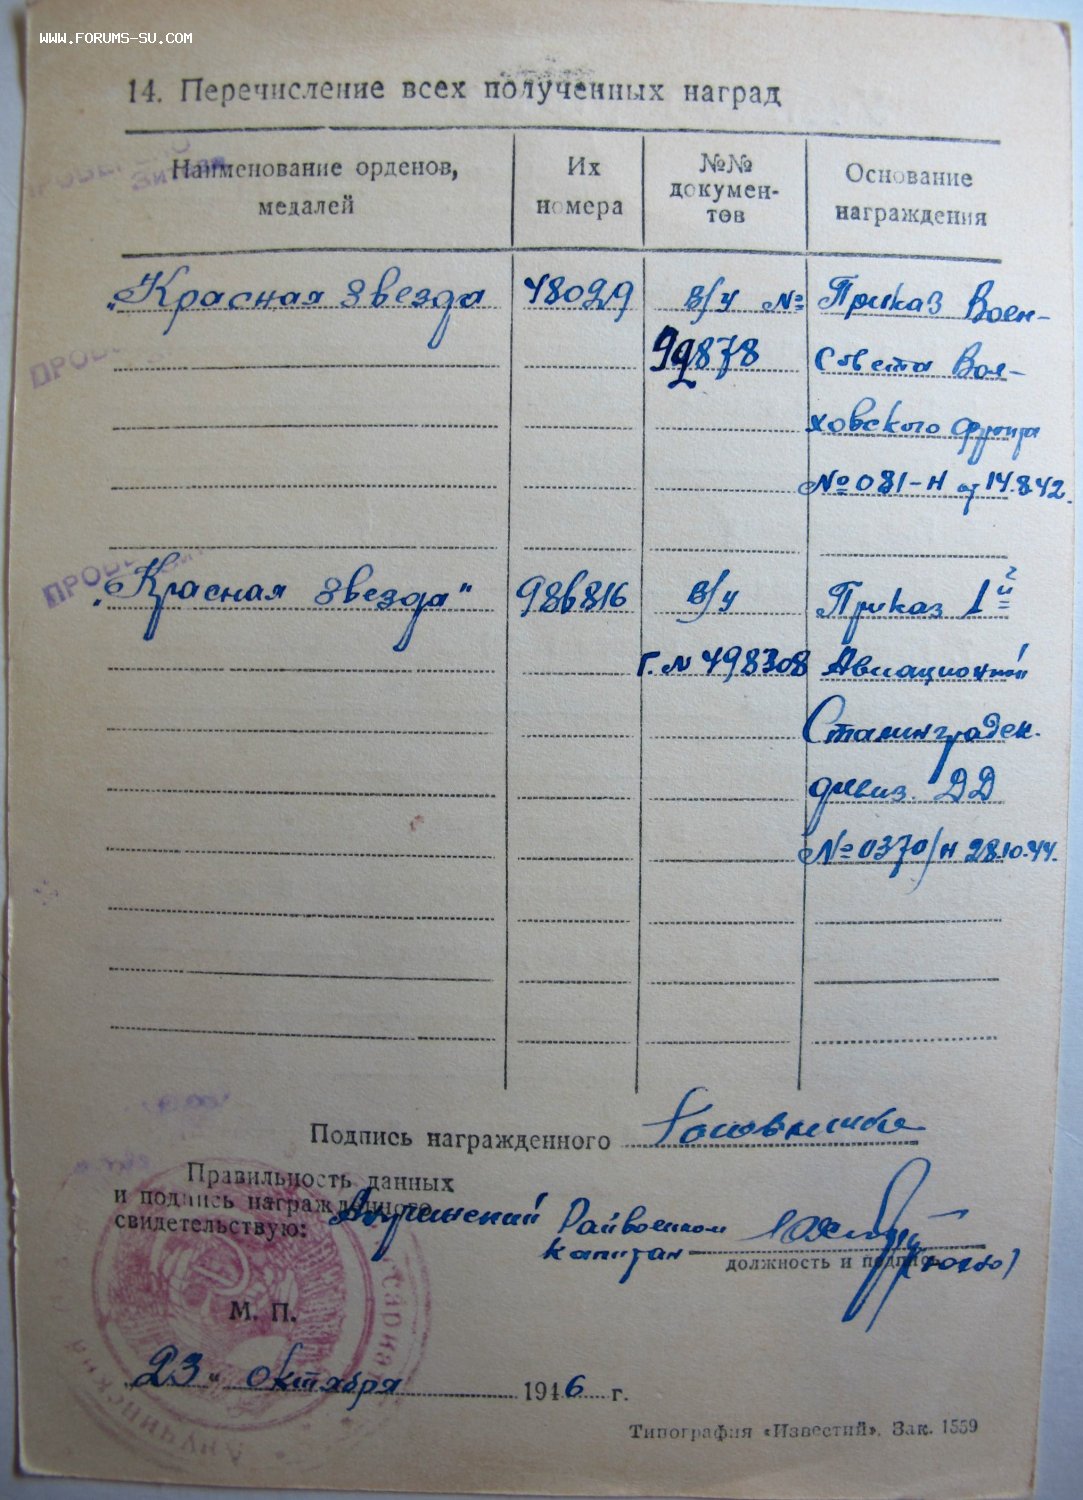 WWW.FORUMS-SU.COM
14. Перечисление всех полученных наград
Наименование орденов, медалей
Их номера
№№ документов
Основание награждения
„Красная Звезда 48029 в/у № Приказ Воен-
99878 Совета Вол-
ховского фронта
№ 081-н от 14.8.42.
„Красная Звезда" 986816 в/у Приказ 1й
г. № 498308 Авиационной
Сталинградск.
дивиз. ДД
№ 0370/н 28.10.44.
Подпись награжденного
Правильность данных
и подпись награжденного
свидетельствую: Анучинский Райвоенком
капитан
должность и подпись
М. П.
23 „ Октября 1946 г.
Типография «Известий». Зак. 1559
ПРОВЕРЕНО
ПРОВЕ
ПРОВЕ